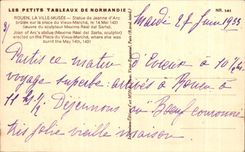 LES PETITS TABLEAUX DE NORMANDIE
ROUEN, LA VILLE-MUSÉE — Statue de Jeanne d'Arc
brûlée sur la place du Vieux-Marché, le 14 Mai 1431
(œuvre du sculpteur Maxime Réal del Sarte).
Joan of Arc's statue (Maxime Real del Sarte, sculptor)
erected on the Place du Vieux-Marché, where she was
burnt the May 14th, 1431
NR. 141
2/
Mardi 27 Juin 1933
Partis ce matin d'Evreux à 10h
voyage superbe arrivés à Rouen à
11h½ Déjeunons au "Bœuf couronné"
très jolie vieille maison